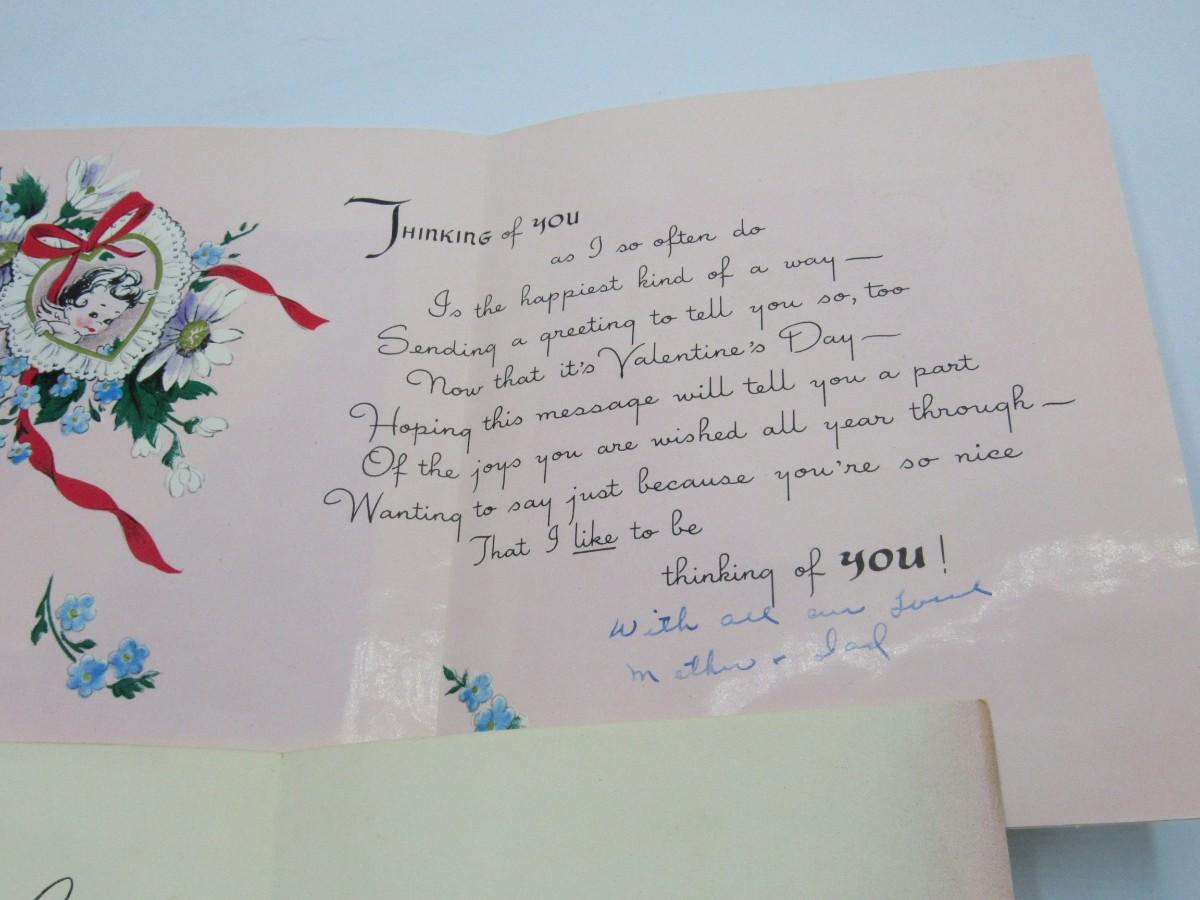 THINKING of YOU
as I so often do
Is the happiest kind of a way —
Sending a greeting to tell you so, too
Now that it's Valentine's Day —
Hoping this message will tell you a part
Of the joys you are wished all year through —
Wanting to say just because you're so nice
That I like to be
thinking of YOU!
With all our love
Mother + Dad